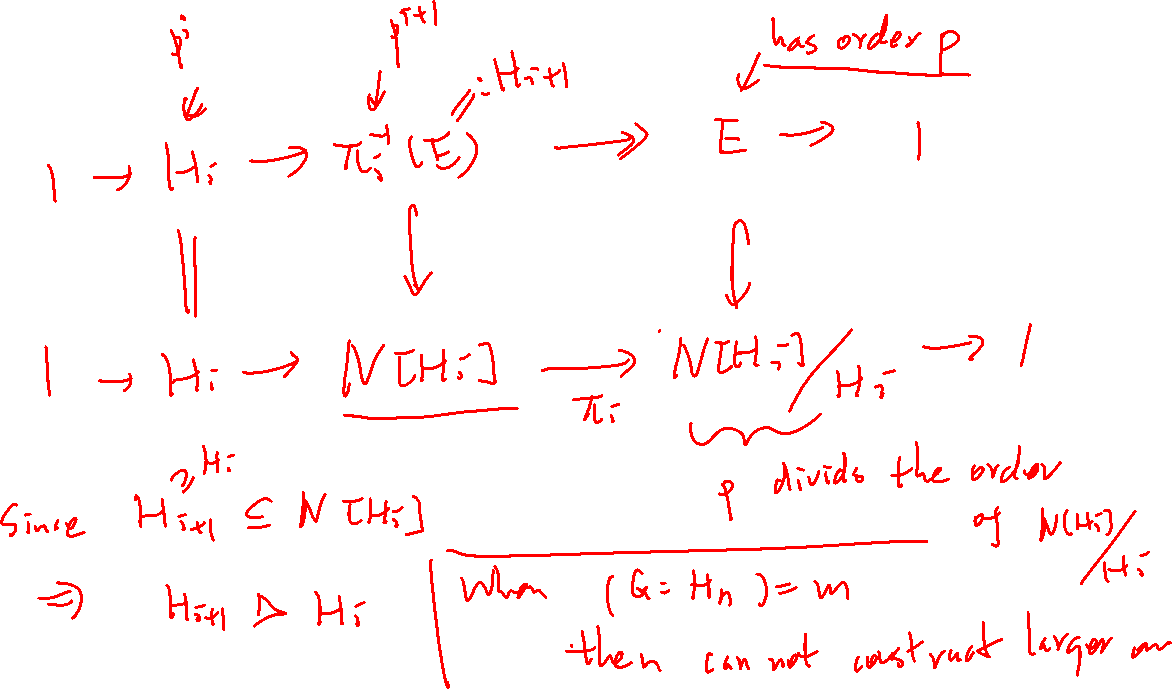 pⁱ pⁱ⁺¹ has order p
=: Hᵢ₊₁
1 → Hᵢ → πᵢ⁻¹(E) ↠ E → 1
1 → Hᵢ → N[Hᵢ] → N[Hᵢ]/Hᵢ → 1
πᵢ
≥ Hᵢ
p divids the order
Since Hᵢ₊₁ ⊆ N[Hᵢ]
of N[Hᵢ]/Hᵢ
⇒ Hᵢ₊₁ ▷ Hᵢ
When (G: Hₙ) = m
then can not construct larger